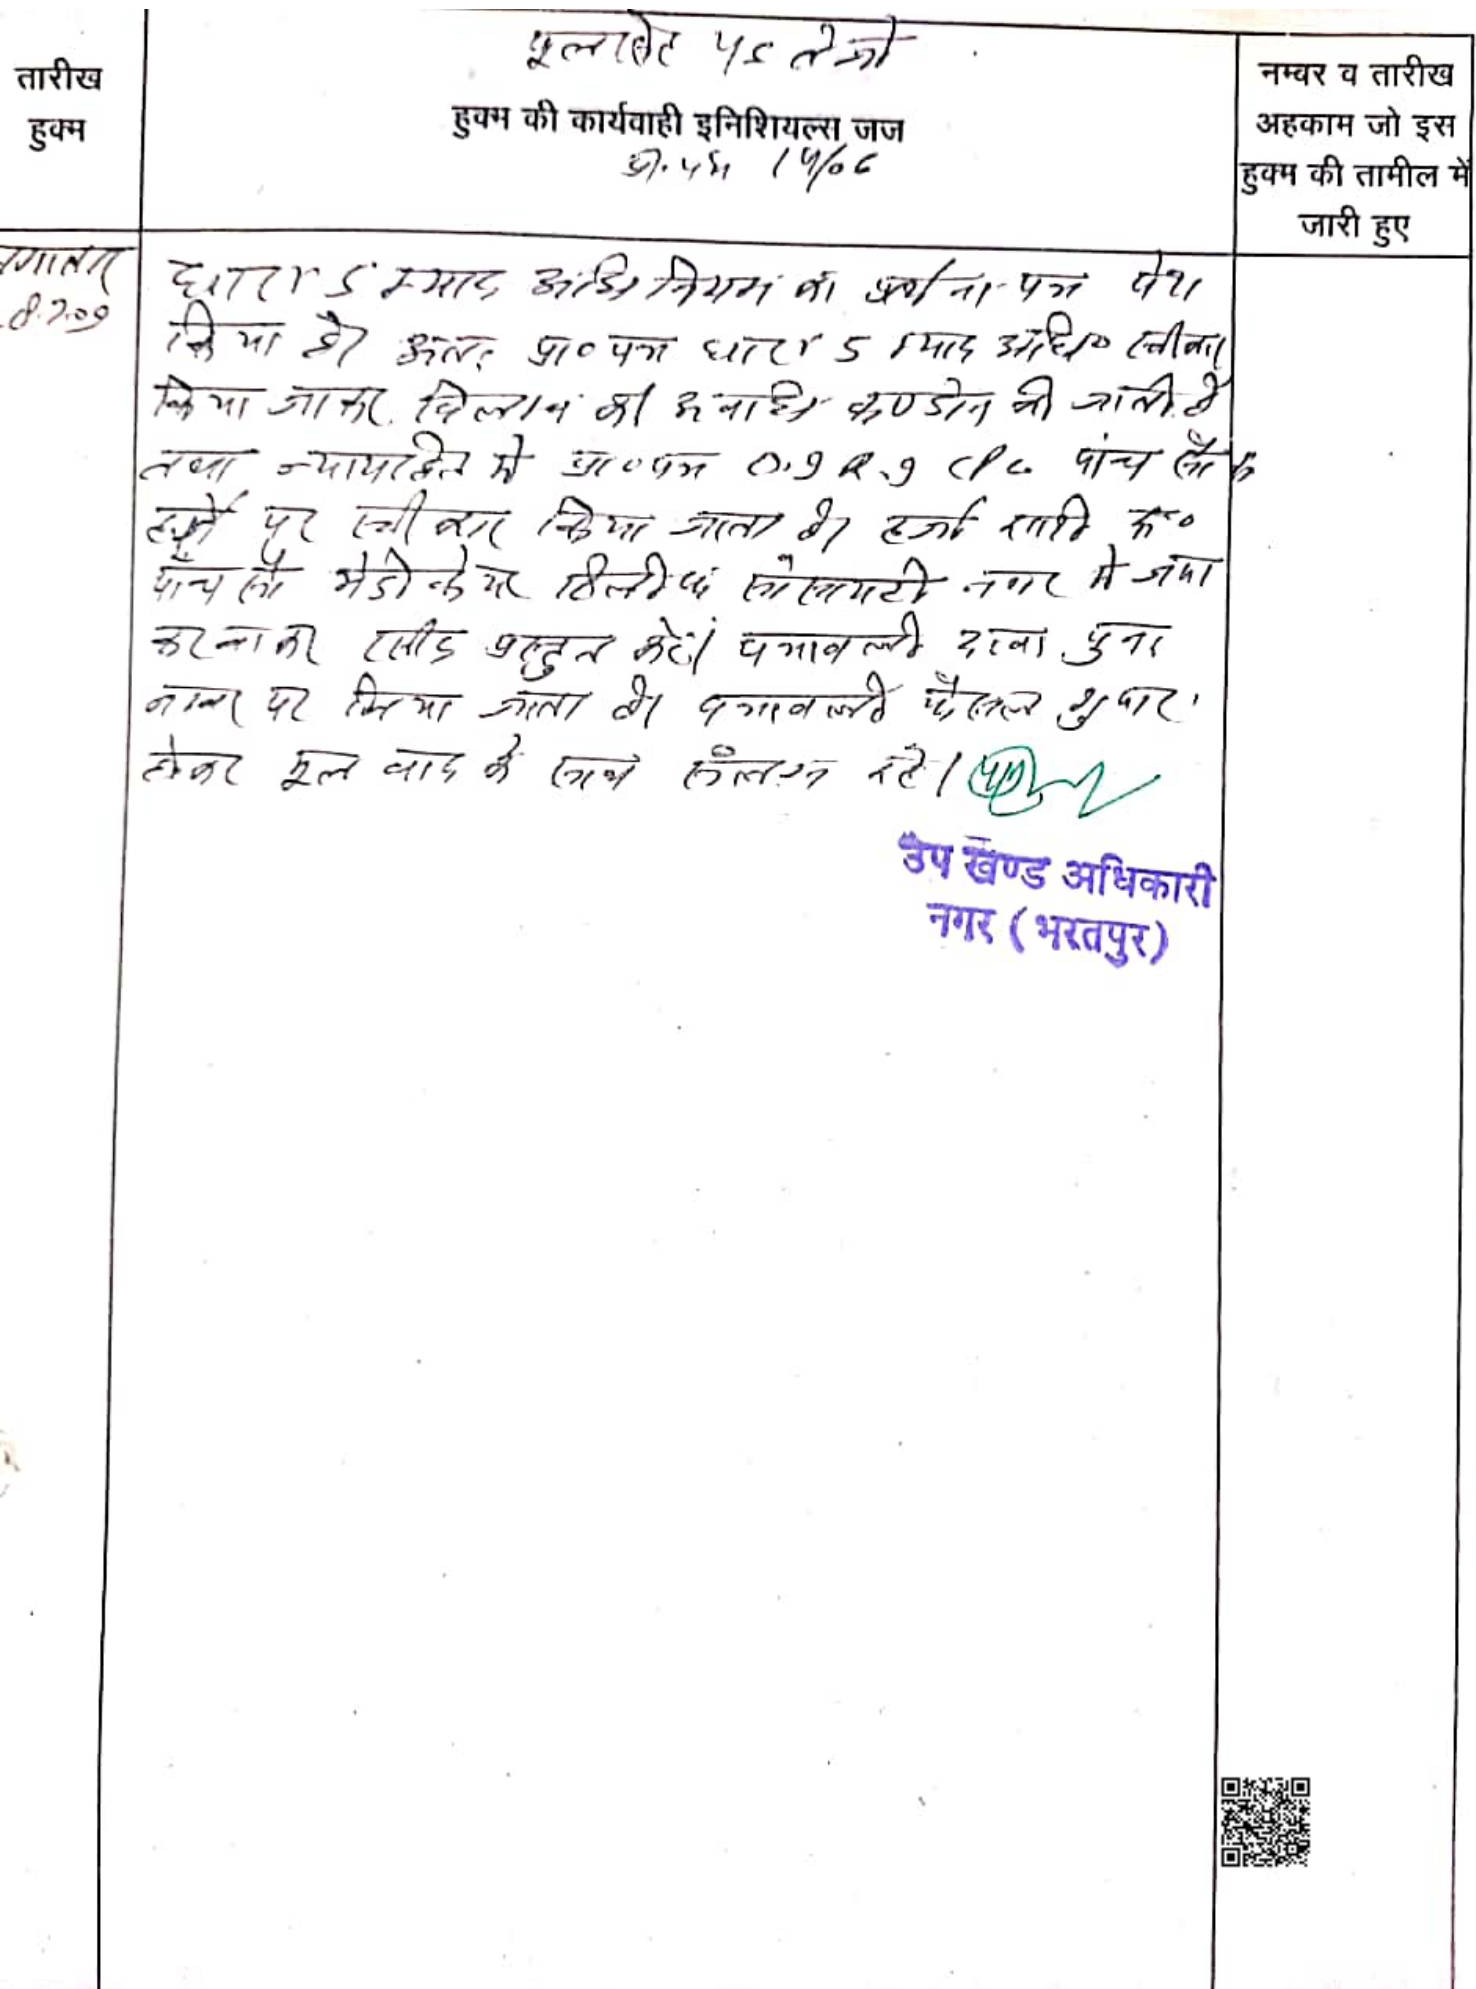 तारीख
हुक्म
हुक्म की कार्यवाही इनिशियल्स जज
प्रा. पत्र 14/06
नम्बर व तारीख
अहकाम जो इस
हुक्म की तामील में
जारी हुए
लगातार
8.7.09
धारा 5 म्याद अधिनियम का प्रार्थना-पत्र पेश
किया है। अतः प्रा० पत्र धारा 5 म्याद अधि० स्वीकार
किया जाकर विलम्ब की अवधि कण्डोन की जाती है
तथा न्यायहित में प्रा०पत्र O.9 R.9 CPC पांच सौ रू
हर्जे पर स्वीकार किया जाता है। हर्जा राशी रू०
पांच सौ मेडीकेयर रिलीफ सोसायटी नगर में जमा
करवाकर रसीद प्रस्तुत करें। पत्रावली दावा पुनः
नम्बर पर लिया जाता है। पत्रावली फैसल शुमार
होकर मूल वाद के साथ संलग्न रहे।
उप खण्ड अधिकारी
नगर (भरतपुर)